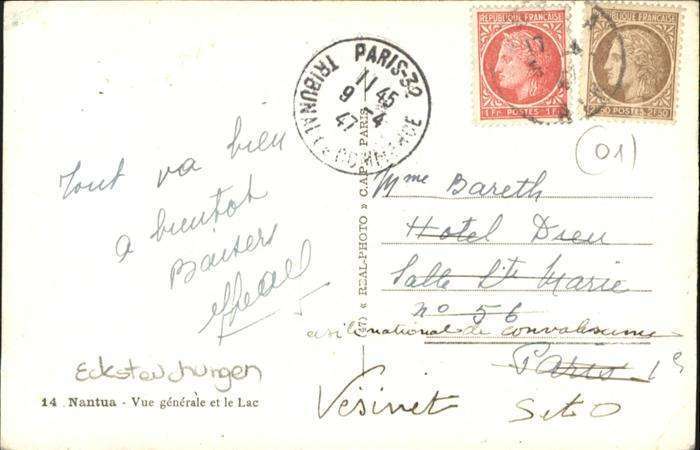 REPUBLIQUE FRANÇAISE
1Fr POSTES 1Fr
REPUBLIQUE FRANÇAISE
POSTES 2F50
PARIS-32
11 45
9 - 4
47
TRIBUNAL DE COMMERCE
(01)
Tout va bien
a bientot
Baisers
Mme Bareth
Hotel Dieu
Salle Ste Marie
no 56
asile national de convalescence
Paris 1er
Vésinet S et O
« REAL-PHOTO » C.A.P. PARIS
14 Nantua - Vue générale et le Lac